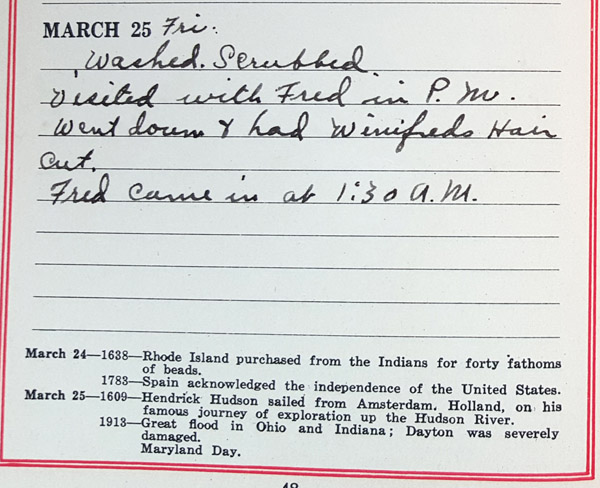 MARCH 25 Fri.
Washed. Scrubbed.
Visited with Fred in P.M.
Went down & had Winifreds Hair
Cut.
Fred came in at 1:30 A.M.
March 24—1638—Rhode Island purchased from the Indians for forty fathoms
of beads.
1783—Spain acknowledged the independence of the United States.
March 25—1609—Hendrick Hudson sailed from Amsterdam, Holland, on his
famous journey of exploration up the Hudson River.
1913—Great flood in Ohio and Indiana; Dayton was severely
damaged.
Maryland Day.